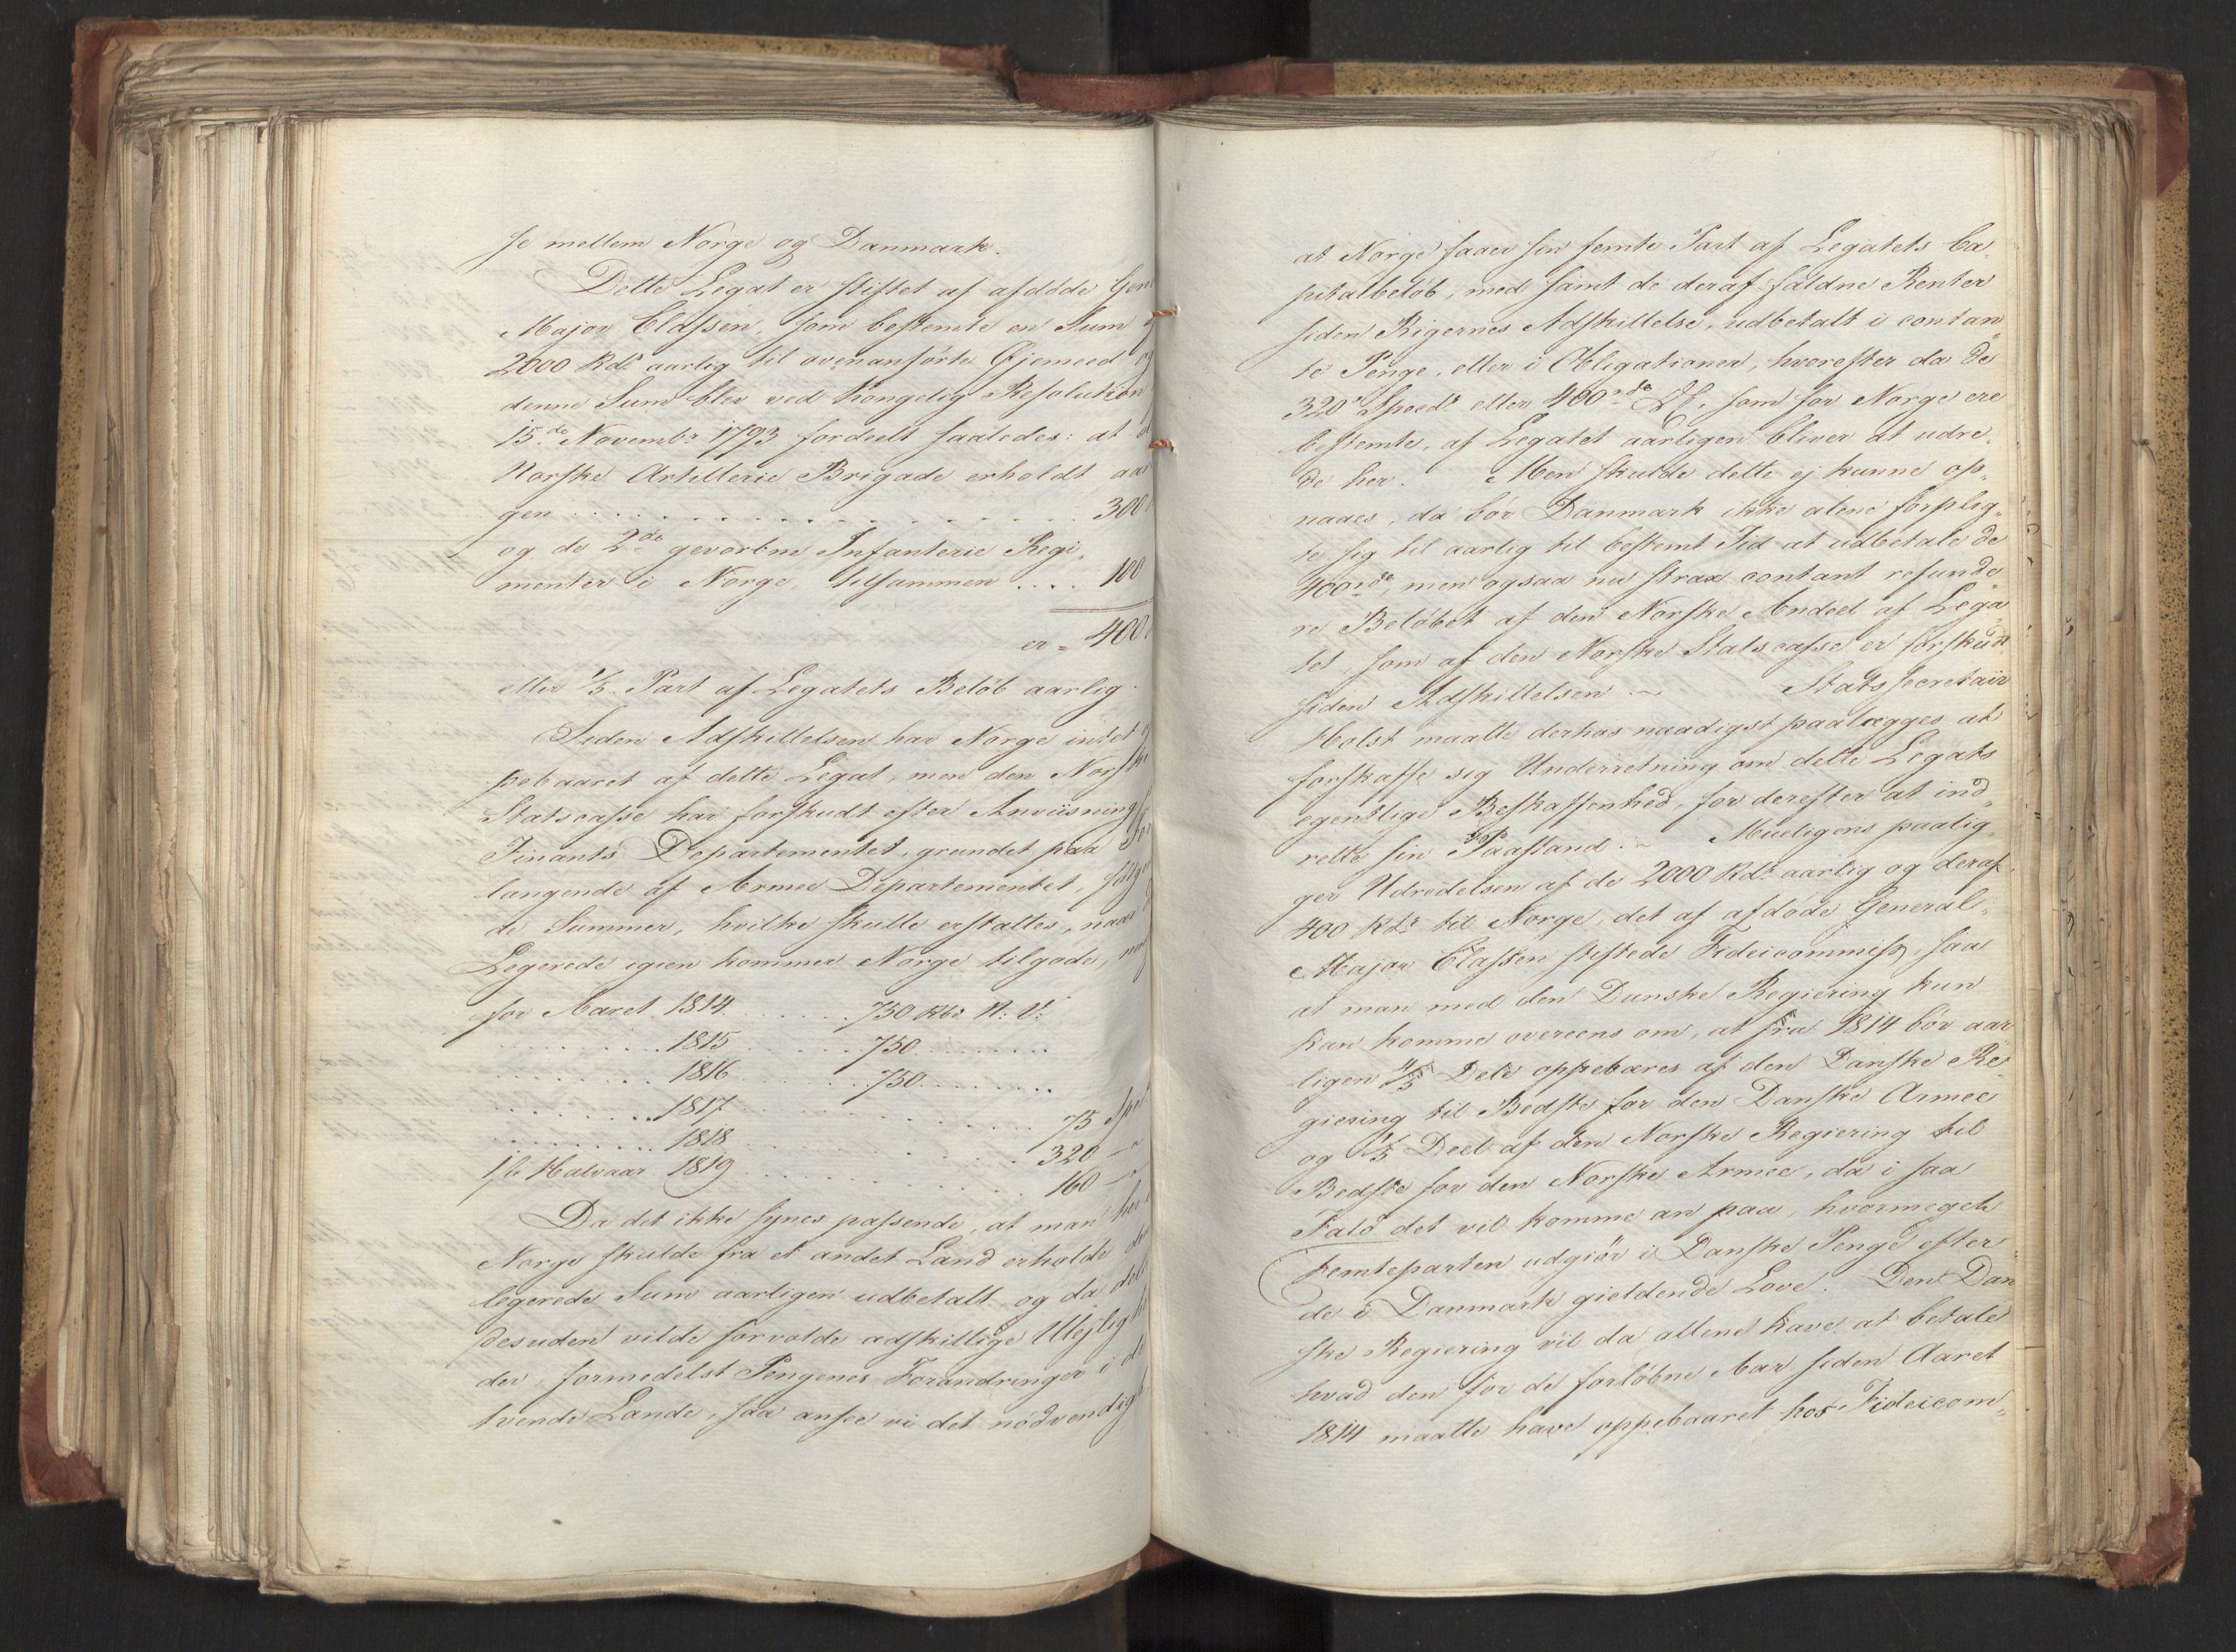 se mellem Norge og Danmark.
Dette Legat er stiftet af afdøde Gen
Major Classen, som bestemte en Sum
2000 Rd aarlig til ovenanførte Øjemeed og
denne Sum blev ved Kongelig Resolution
15de Novembr 1793 fordeelt saaledes: at
Norske Artillerie Brigade erholdt aar
gen . . . . . . . . . . . . . . . 300
og de 2de gevorbne Infanterie Regi„
menter i Norge, tilsammen . . . . 100
er = 400
eller 1/5 Part af Legatets Beløb aarlig.
Siden Adskillelsen har Norge intet
pebaaret af dette Legat, men den Norske
Statscasse har forskudt efter Anviisning
Finants Departementet, grundet paa For
langende af Armee Departementet, følge
de Summer, hvilke skulle erstattes, naar
Legerede igien kommer Norge tilgode,
for Aaret 1814 . . . . . . 750 Rbd N: V:
. . . . . . . . 1815 . . . . . . 750 . . . . . . . .
. . . . . . . . 1816 . . . . . . 750 . . . . . . . .
. . . . . . . . 1817 . . . . . . . . . . . . . . 75 Spd
. . . . . . . . 1818 . . . . . . . . . . . . . . 320 —"
1ste Halvaar 1819 . . . . . . . . . . . . . . 160 —"
Da det ikke synes passende, at man her i
Norge skulde fra et andet Land erholde den
legerede Sum aarligen udbetalt, og da det
desuden vilde forvolde adskillige Ulejlig
der formedelst Pengenes Forandringer i de
tvende Lande, saa ansee vi det nødvendigt
at Norge faaer sin femte Part af Legatets Ca„
pitalbeløb, med samt de deraf faldne Renter
siden Rigernes Adskillelse, udbetalt i contan„
te Penge, eller i Obligationer, hvorefter da de
320 Specd eller 400 rd DC, som for Norge ere
bestemte, af Legatet aarligen bliver at udre„
de her. Men skulde dette ej kunne op„
naaes, da bør Danmark ikke alene forplig„
te sig til aarlig til bestemt Tid at udbetale de
400 rd, men ogsaa nu strax contant refunde„
re Beløbet af den Norske Andeel af Lega„
tet, som af den Norske Statscasse er forskudt
siden Adskillelsen.~ Statssecretair
Holst maatte derhos naadigst paalægges at
forskaffe sig Underretning om dette Legats
egentlige Beskaffenhed, for derefter at ind„
rette sin Paastand.~ Mueligens paalig„
ger Udredelsen af de 2000 Rd aarlig og deraf
400 Rd til Norge, det af afdøde General„
Major Classen stiftede Fideicommiss, saa
at man med den Danske Regiering kun
kan komme overeens om, at fra 1814 bør aar
ligen 4/5 Dele oppebæres af den Danske Re„
giering til Bedste for den Danske Armee
og 1/5 Deel af den Norske Regiering til
Bedste for den Norske Armee, da i saa
Fald det vil komme an paa, hvormeget
Femteparten udgiør i Danske Penge efter
de i Danmark gieldende Love. Den Dan
ske Regiering vil da allene have at betale
hvad den for de forløbne Aar siden Aaret
1814 maatte have oppebaaret hos Fideicom„